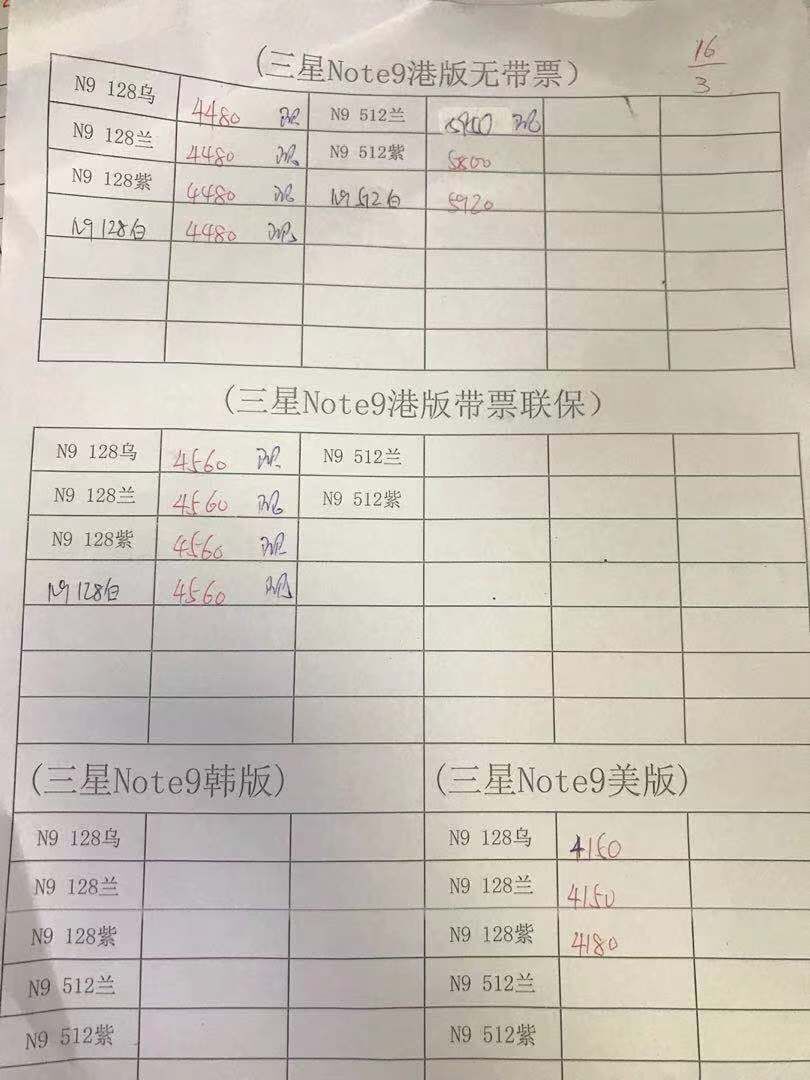 16
3
(三星Note9港版无带票)
N9 128乌 4480 N9 512兰
N9 128兰 4480 N9 512紫 5800
N9 128紫 4480 N9 512白 5920
N9 128白 4480
(三星Note9港版带票联保)
N9 128乌 4560 N9 512兰
N9 128兰 4560 N9 512紫
N9 128紫 4560
N9 128白 4560
(三星Note9韩版) (三星Note9美版)
N9 128乌 N9 128乌 4150
N9 128兰 N9 128兰 4150
N9 128紫 N9 128紫 4180
N9 512兰 N9 512兰
N9 512紫 N9 512紫